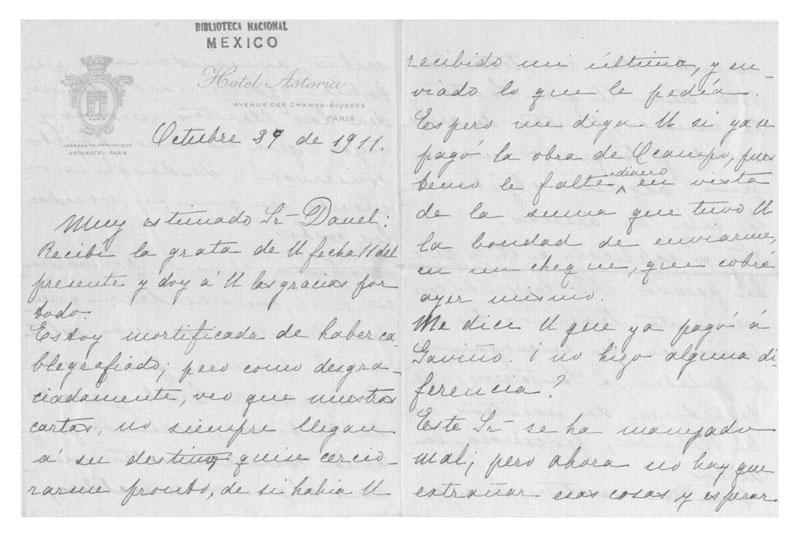 BIBLIOTECA NACIONAL
MEXICO
Hotel Astoria
AVENUE DES CHAMPS-ELYSÉES
PARIS
ADRESSE TELEGRAPHIQUE
ASTOROTEL-PARIS
Octubre 27 de 1911.
Muy estimado Sr Danel:
Recibí la grata de U fecha 11 del
presente y doy á U las gracias por
todo.
Estoy mortificada de haber ca-
blegrafiado; pero como desgra-
ciadamente, veo que nuestras
cartas, no siempre llegan
á su destino, quise cercio-
rarme pronto, de si había U
recibido mi última, y en-
viado lo que le pedía.
Espero me diga U si ya se
pagó la obra de Ocampo, pues
temo le falte dinero en vista
de la suma que tuvo U
la bondad de enviarme,
en un cheque, que cobré
ayer mismo.
Me dice U que ya pagó á
Gaviño. ¿no hizo alguna di-
ferencia?
Este Sr se ha manejado
mal; pero ahora no hay que
extrañar esas cosas y esperar